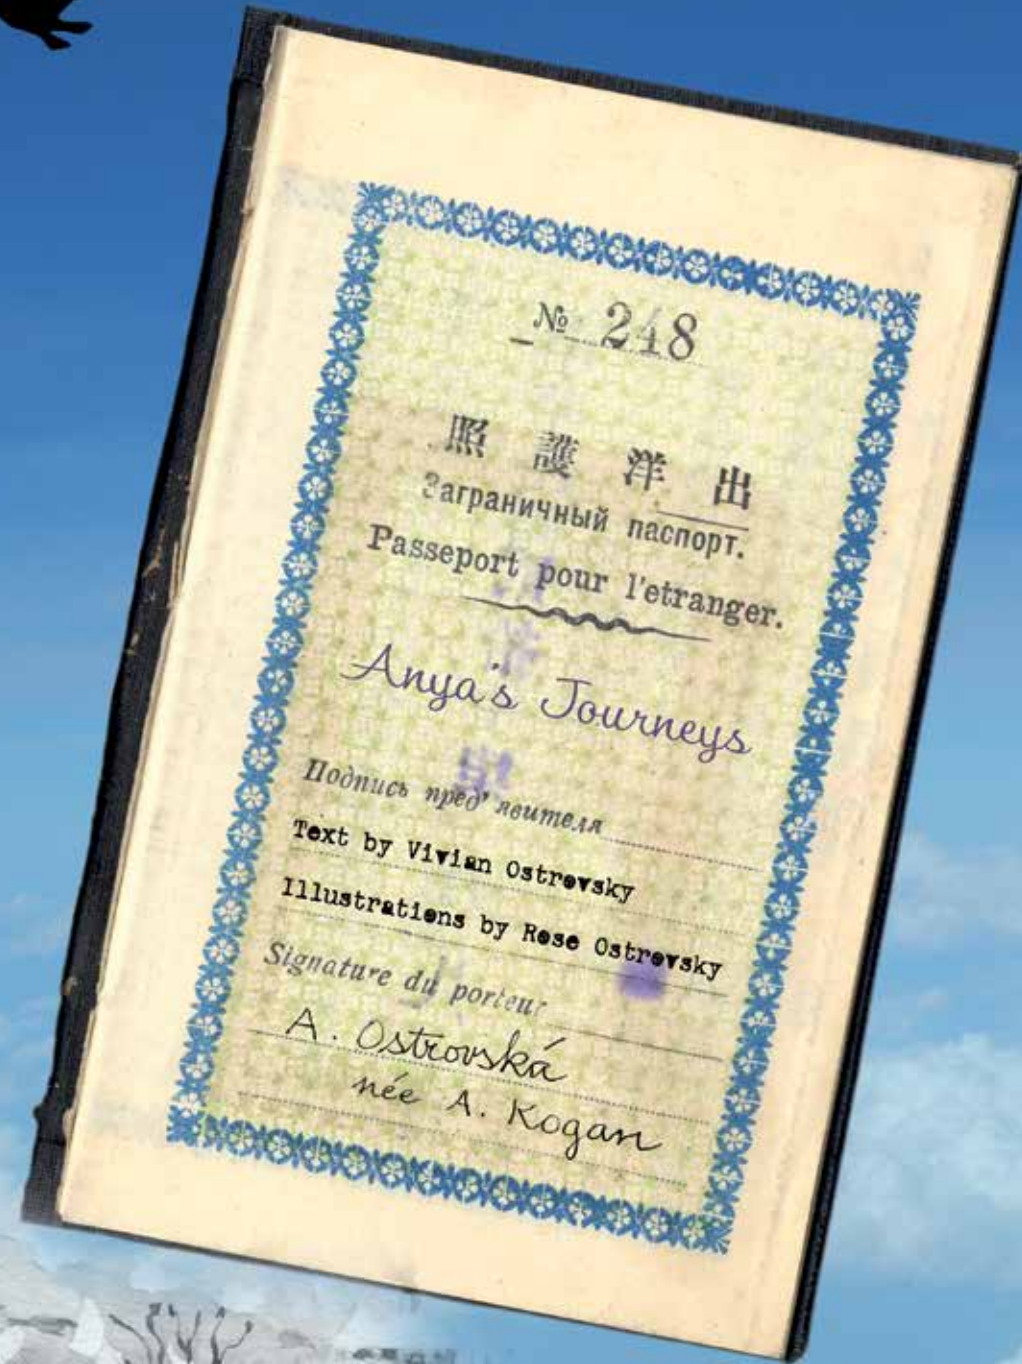 № 248
照 護 洋 出
Заграничный паспорт.
Passeport pour l'etranger.
Anya's Journeys
Подпись пред'явителя
Text by Vivian Ostrovsky
Illustrations by Rose Ostrovsky
Signature du porteur
A. Ostrovská
née A. Kogan